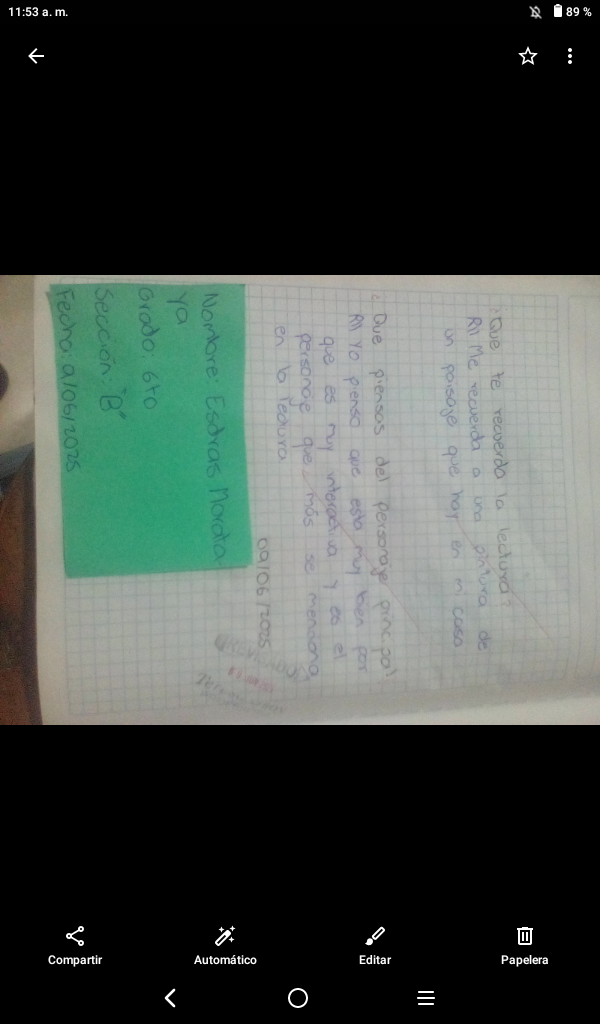 11:53 a. m.
89 %
¿Que te recuerda la lectura?
R// Me recuerda a una pintura de
un paisaje que hay en mi casa
¿Que piensas del personaje principal
R// Yo pienso que esta muy bien por
que es muy interactiva y es el
personaje que más se menciona
en la lectura
09/06/2025
Nombre: Esdras
Ya
Grado: 6to
Sección: "B"
Fecha: 9/06/2025
Compartir
Automático
Editar
Papelera